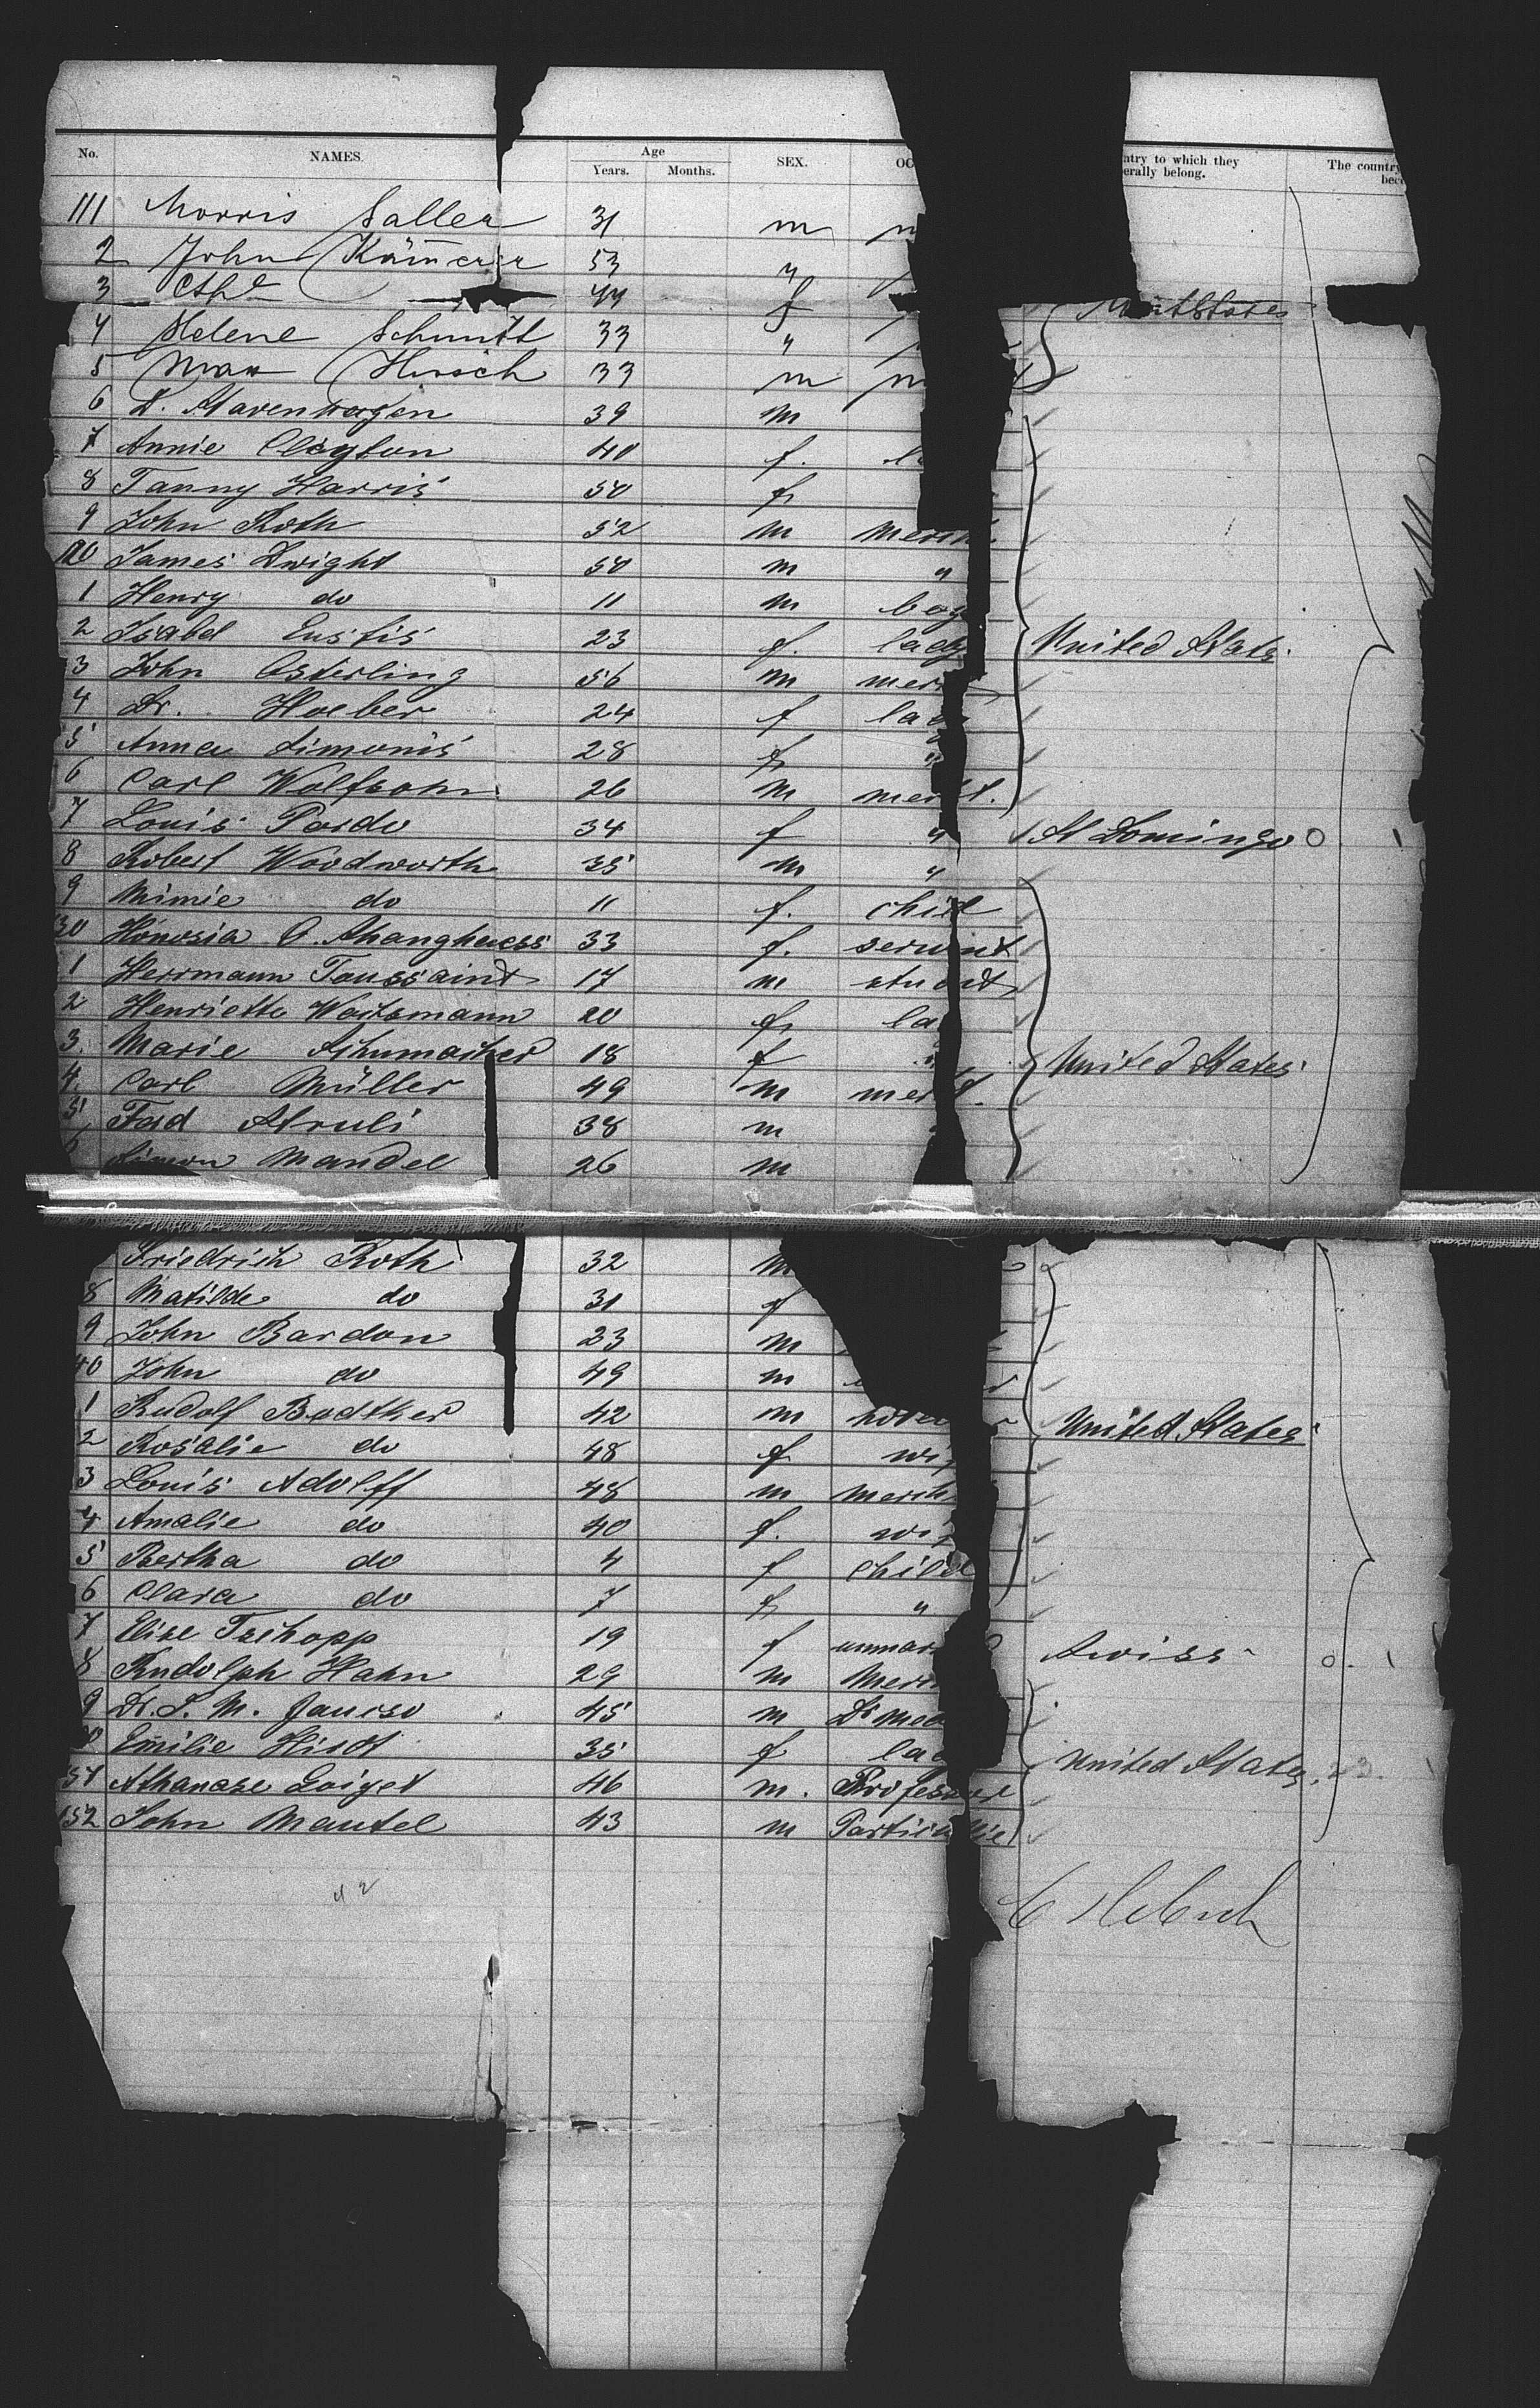 No. NAMES. Age Years. Months. SEX. OC ntry to which they erally belong. The country bec
111 Morris Saller 31 m m
2 John Kämerer 53 "
3 Cthe 44 f United States
4 Helene Schmidt 33 "
5 Max Hirsch 33 m m
6 D. Stavenhagen 39 m
7 Annie Clayton 40 f. l
8 Fanny Harris 50 f
9 John Roth 52 m merch
120 James Dwight 50 m "
1 Henry do 11 m boy
2 Isabel Eustis 23 f. lady United States
3 John Osterling 56 m mer
4 Dr. Hoeber 24 f lad
5 Anna Simonis 28 f "
6 Carl Wolfsohn 26 m merct.
7 Louis Pardo 34 f " St Domingo O
8 Robert Woodworth 35 m "
9 Mimie do 11 f. child
30 A. 33 f. servant
1 Herrmann Toussaint 17 m student
2 Henriette Weitzmann 20 f la
3. Marie Schumacher 18 f United States
4. Carl Müller 49 m mert.
5 Struli 38 m
6 Simon Mandel 26 m
Friedrich Roth 32 m
8 Matilde do 31 f
9 John Bardon 23 m
40 John do 49 m
1 Rudolf Bodtker 42 m hotel United States
2 Rosalie do 48 f wif
3 Louis Adolff 48 m merch
4 Amalie do 40 f. wif
5 Bertha do 4 f child
6 Clara do 7 f "
7 Elise Tschopp 19 f unmar Swiss O.
8 Rudolph Hahn 29 m Mer
9 Dr. S. M. 45 m Dr med
Emilie Hirdt 35 f lad United States
51 Athanase Loiget 46 m. Professor
152 John Mantel 43 m Particulier
42